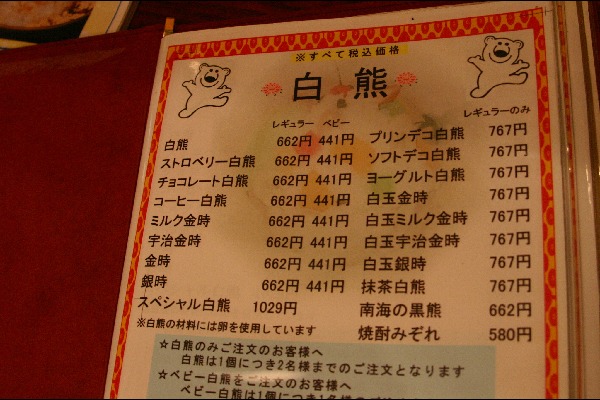 ※すべて税込価格
白熊
レギュラー ベビー
白熊 662円 441円
ストロベリー白熊 662円 441円
チョコレート白熊 662円 441円
コーヒー白熊 662円 441円
ミルク金時 662円 441円
宇治金時 662円 441円
金時 662円 441円
銀時 662円 441円
スペシャル白熊 1029円
※白熊の材料には卵を使用しています
レギュラーのみ
プリンデコ白熊 767円
ソフトデコ白熊 767円
ヨーグルト白熊 767円
白玉金時 767円
白玉ミルク金時 767円
白玉宇治金時 767円
白玉銀時 767円
抹茶白熊 767円
南海の黒熊 662円
焼酎みぞれ 580円
☆白熊のみご注文のお客様へ
白熊は1個につき2名様までのご注文となります
☆ベビー白熊をご注文のお客様へ
ベビー白熊は1個につき1名様の